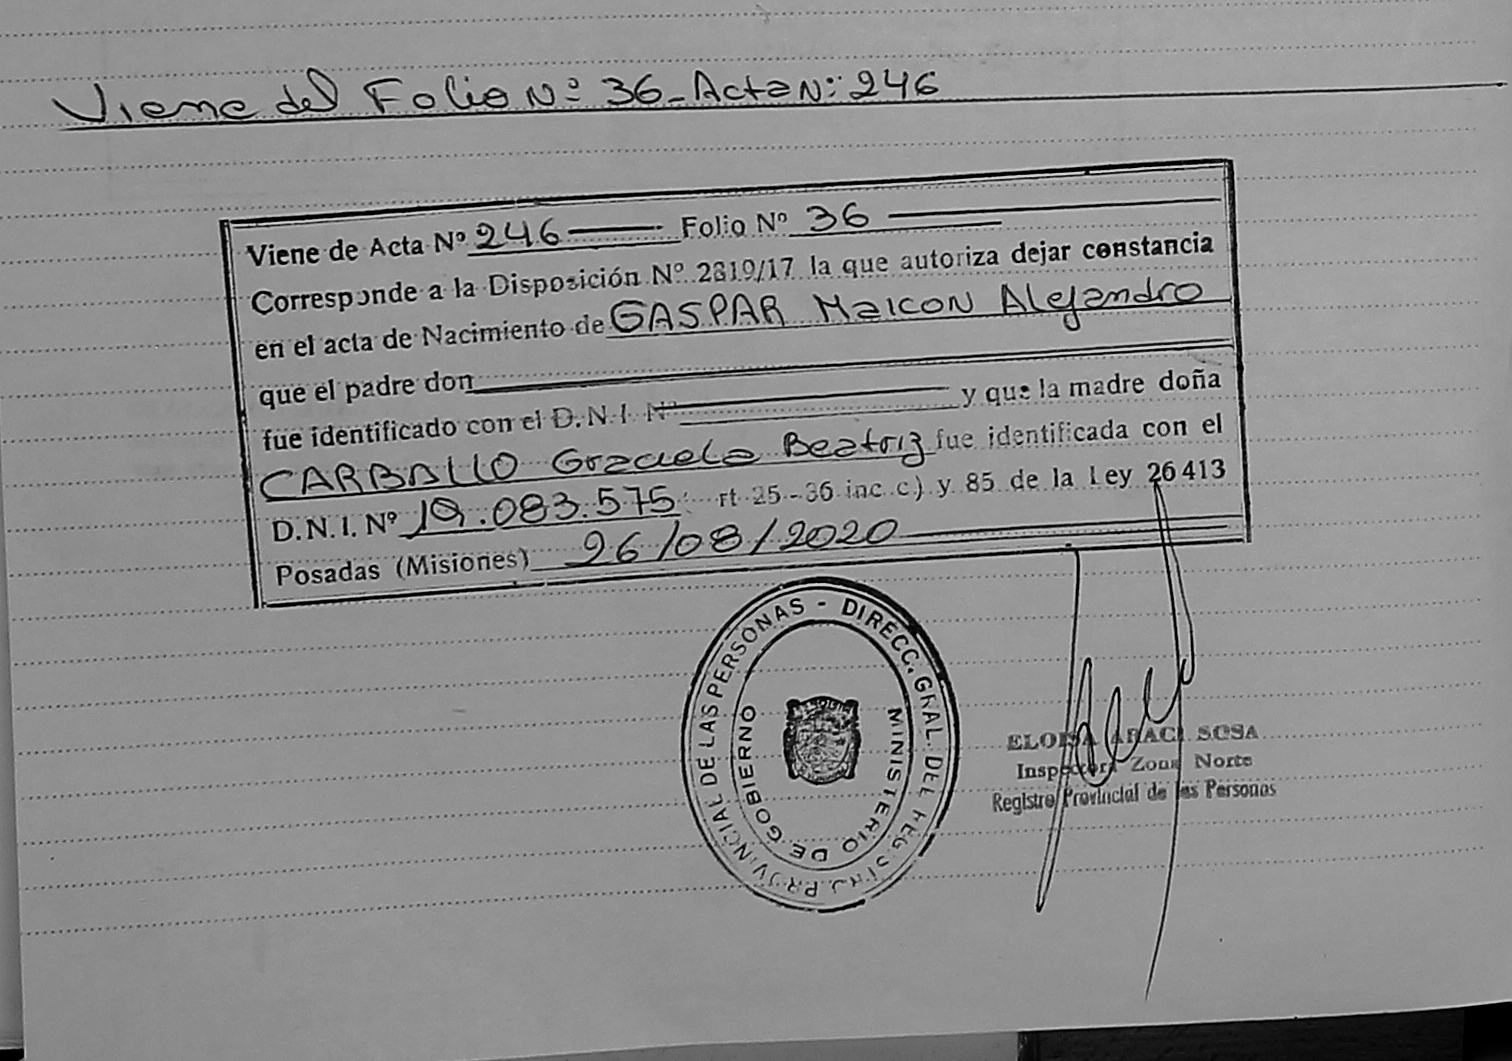 Viene del Folio Nº 36 - Acta Nº: 246
Viene de Acta Nº 246 Folio Nº 36
Corresponde a la Disposición Nº 2819/17 la que autoriza dejar constancia
en el acta de Nacimiento de GASPAR Maicon Alejandro
que el padre don
fue identificado con el D.N.I. Nº y que la madre doña
CARBALLO Graciela Beatriz fue identificada con el
D.N.I. Nº 19.083.575 rt 25-36 inc c) y 85 de la Ley 26413
Posadas (Misiones) 26/08/2020
DIRECC. GRAL. DEL REG. PROVINCIAL DE LAS PERSONAS -
MINISTERIO DE GOBIERNO
ELOISA ARACI SOSA
Inspectora Zona Norte
Registro Provincial de las Personas